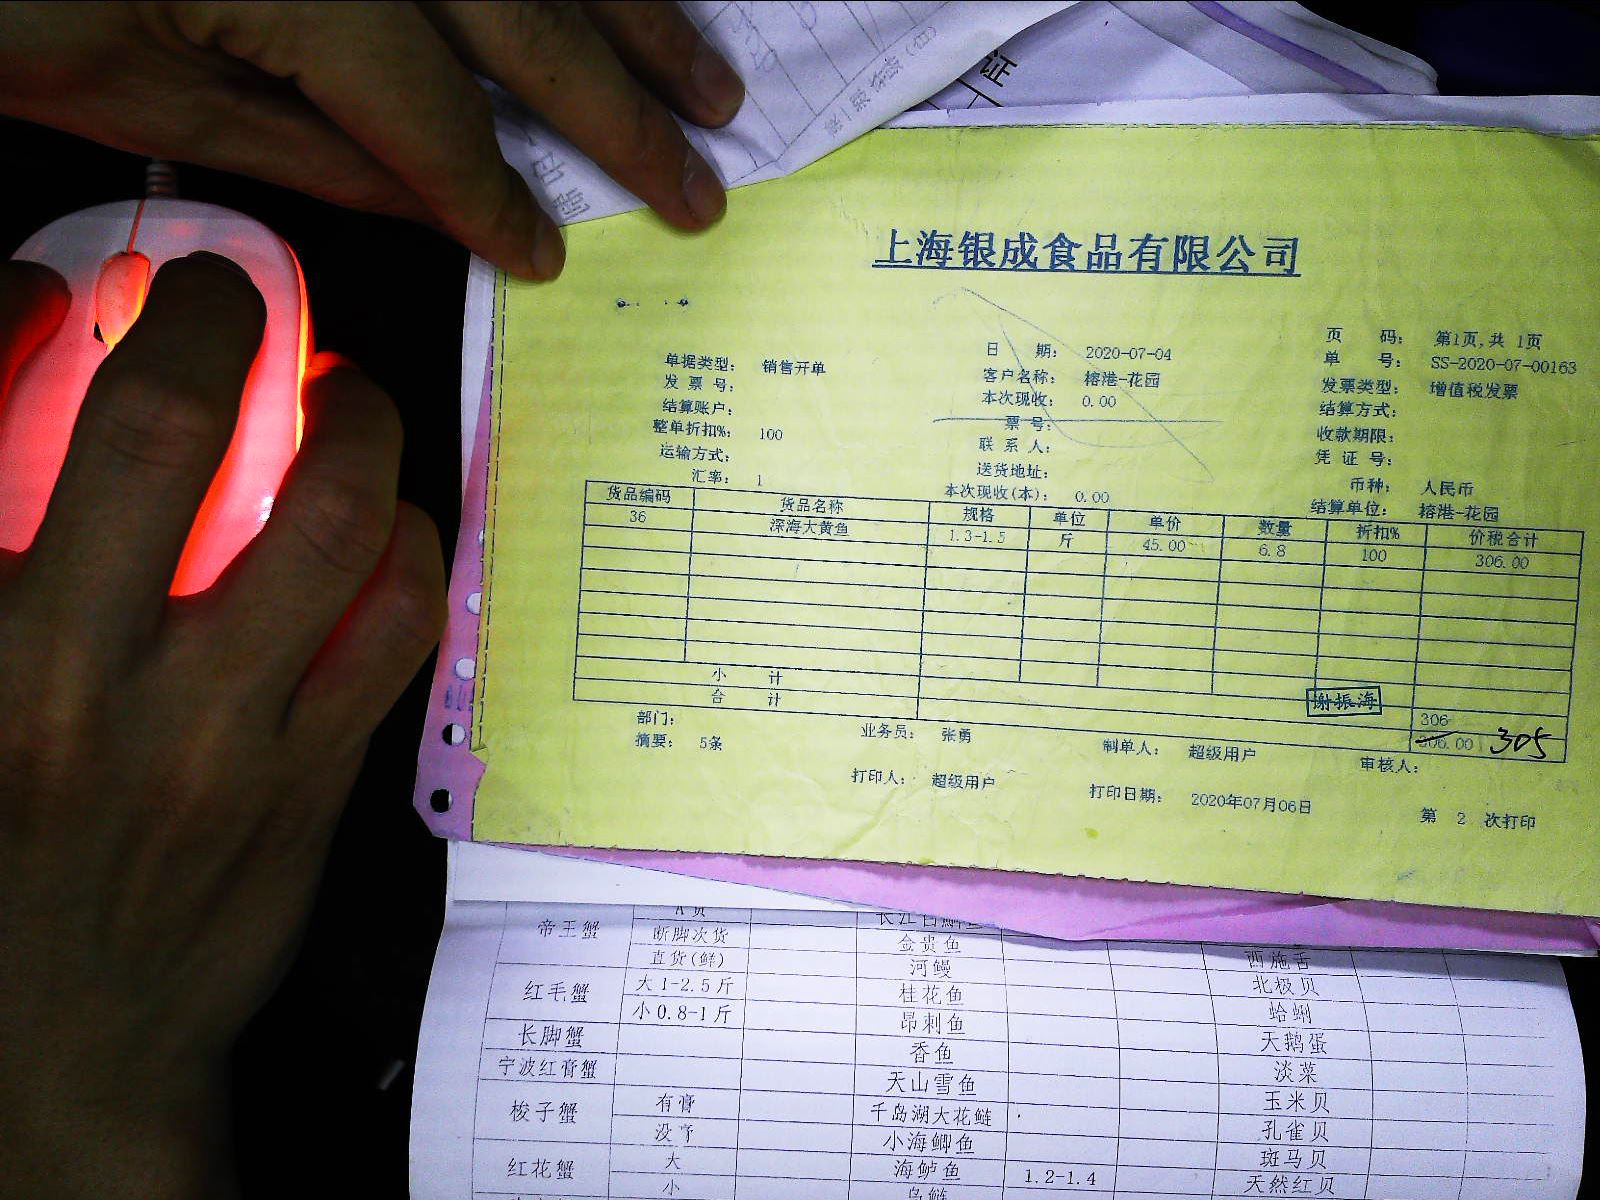 证
上海银成食品有限公司
页 码： 第1页,共 1页
单据类型： 销售开单 日 期： 2020-07-04 单 号： SS-2020-07-00163
发 票 号： 客户名称： 榕港-花园 发票类型： 增值税发票
结算账户： 本次现收： 0.00 结算方式：
整单折扣%： 100 票 号： 收款期限：
运输方式： 联 系 人： 凭 证 号：
汇率： 1 送货地址： 币种： 人民币
本次现收(本)： 0.00 结算单位： 榕港-花园
货品编码 货品名称 规格 单位 单价 数量 折扣% 价税合计
36 深海大黄鱼 1.3-1.5 斤 45.00 6.8 100 306.00
小 计
合 计
谢振海
306
306.00 305
部门： 业务员： 张勇 制单人： 超级用户 审核人：
摘要： 5条
打印人： 超级用户 打印日期： 2020年07月06日 第 2 次打印
帝王蟹 断脚次货 金贵鱼 西施舌
直货(鲜) 河鳗 北极贝
红毛蟹 大1-2.5斤 桂花鱼 蛤蜊
小0.8-1斤 昂刺鱼 天鹅蛋
长脚蟹 香鱼 淡菜
宁波红膏蟹 天山雪鱼 玉米贝
梭子蟹 有膏 千岛湖大花鲢 孔雀贝
没膏 小海鲫鱼 斑马贝
红花蟹 大 海鲈鱼 1.2-1.4 天然红贝
小